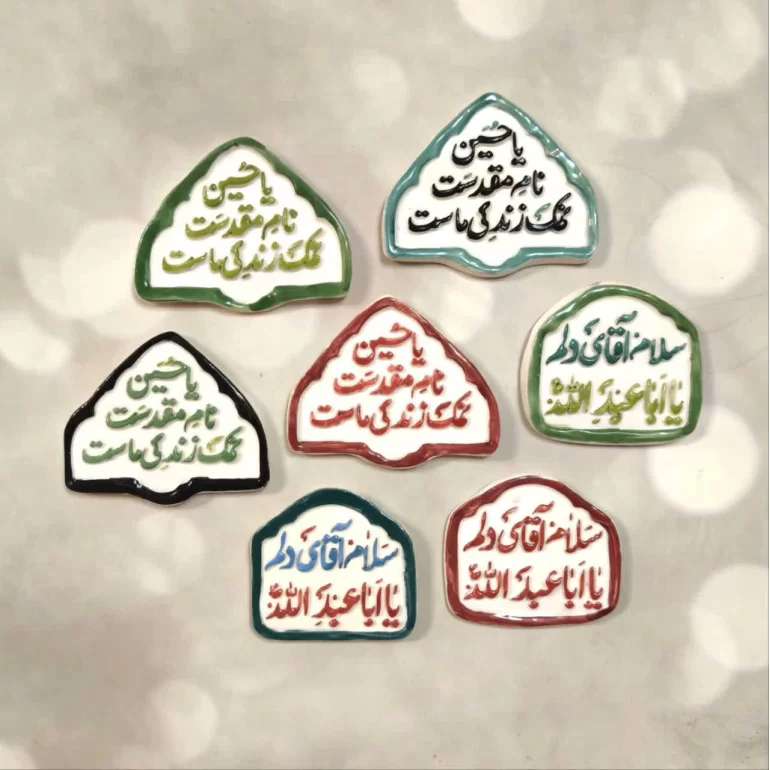 یا حسین
نام مقدست
نمک زندگی ماست
یا حسین
نام مقدست
نمک زندگی ماست
یا حسین
نام مقدست
نمک زندگی ماست
یا حسین
نام مقدست
نمک زندگی ماست
سلام آقای دلم
یا اَبا عبدِ اللهؑ
سلام آقای دلم
یا اَبا عبدَ اللهؑ
سلام آقای دلم
یا اَبا عبدَ اللهؑ